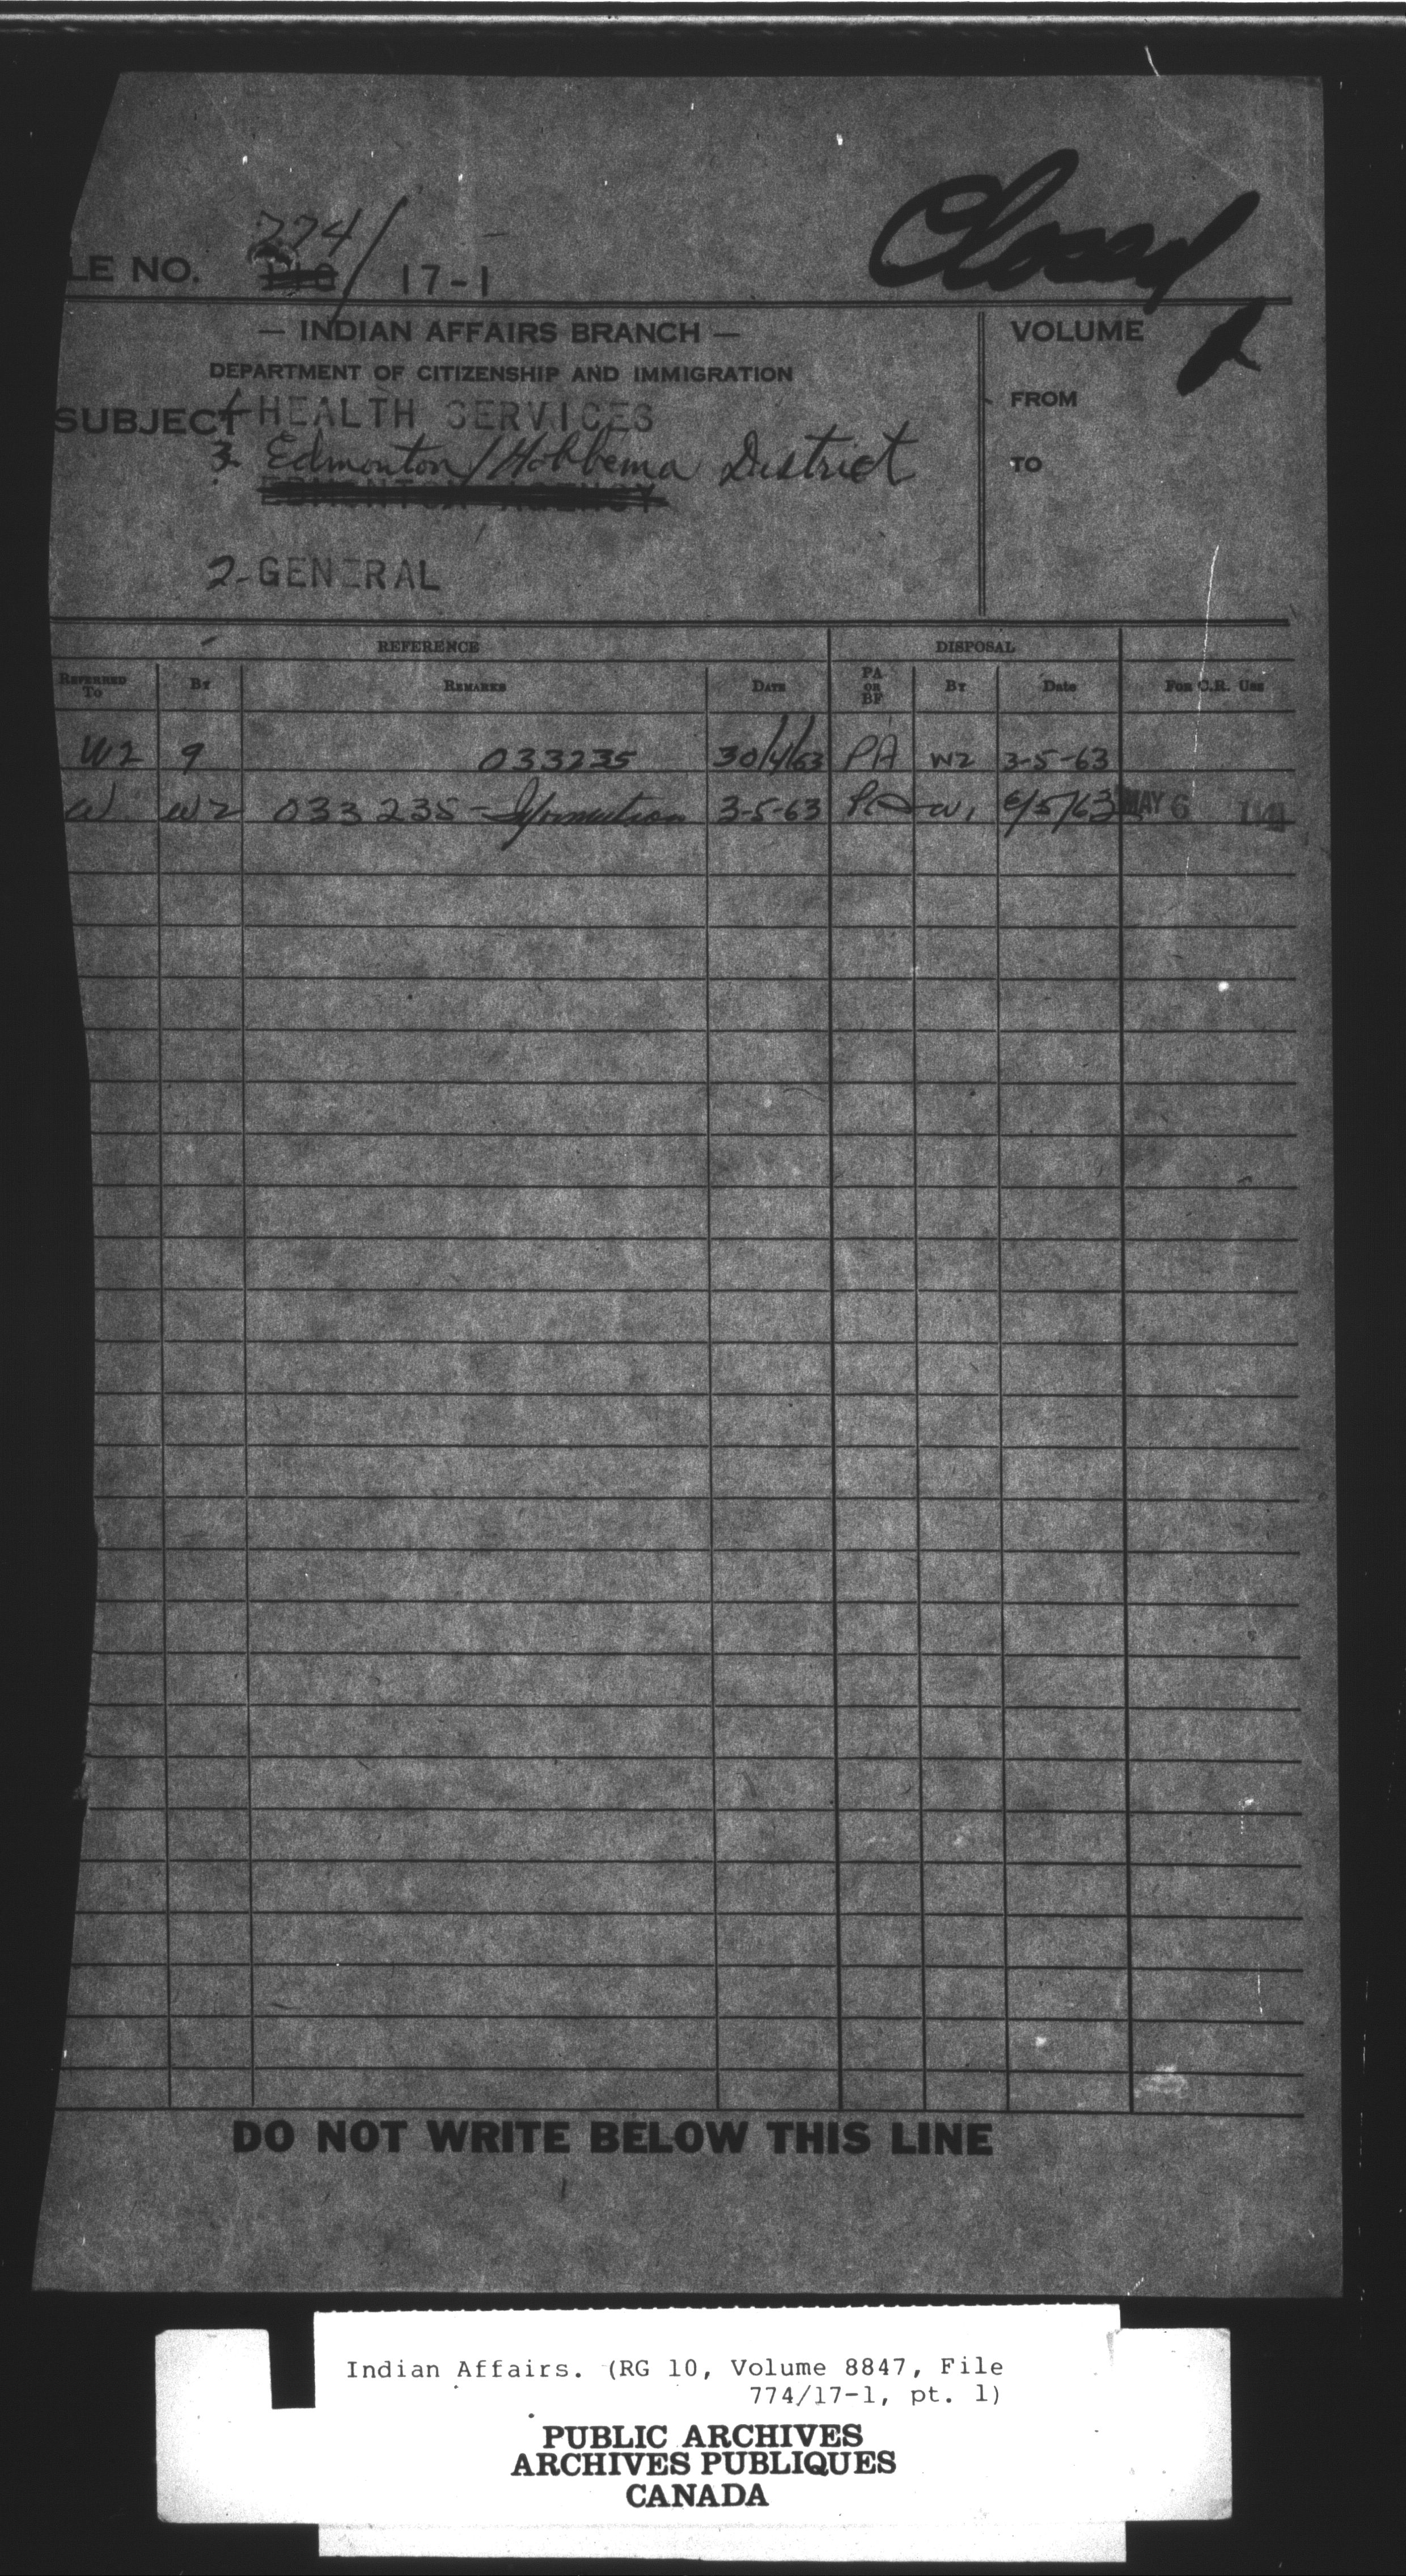 Closed
774/
LE NO. 140/ 17-1
— INDIAN AFFAIRS BRANCH —
DEPARTMENT OF CITIZENSHIP AND IMMIGRATION
VOLUME 1
FROM
TO
SUBJECT 1 HEALTH SERVICES
3. Edmonton/Hobbema District
EDMONTON AGENCY
2-GENERAL
REFERENCE DISPOSAL
REFERRED TO BY REMARKS DATE PA OR BF BY Date FOR C.R. USE
W2 9 033235 30/4/63 PA W2 3-5-63
W W2 033235 - Information 3-5-63 PA W1 6/5/63 MAY 6
DO NOT WRITE BELOW THIS LINE
Indian Affairs. (RG 10, Volume 8847, File
774/17-1, pt. 1)
PUBLIC ARCHIVES
ARCHIVES PUBLIQUES
CANADA